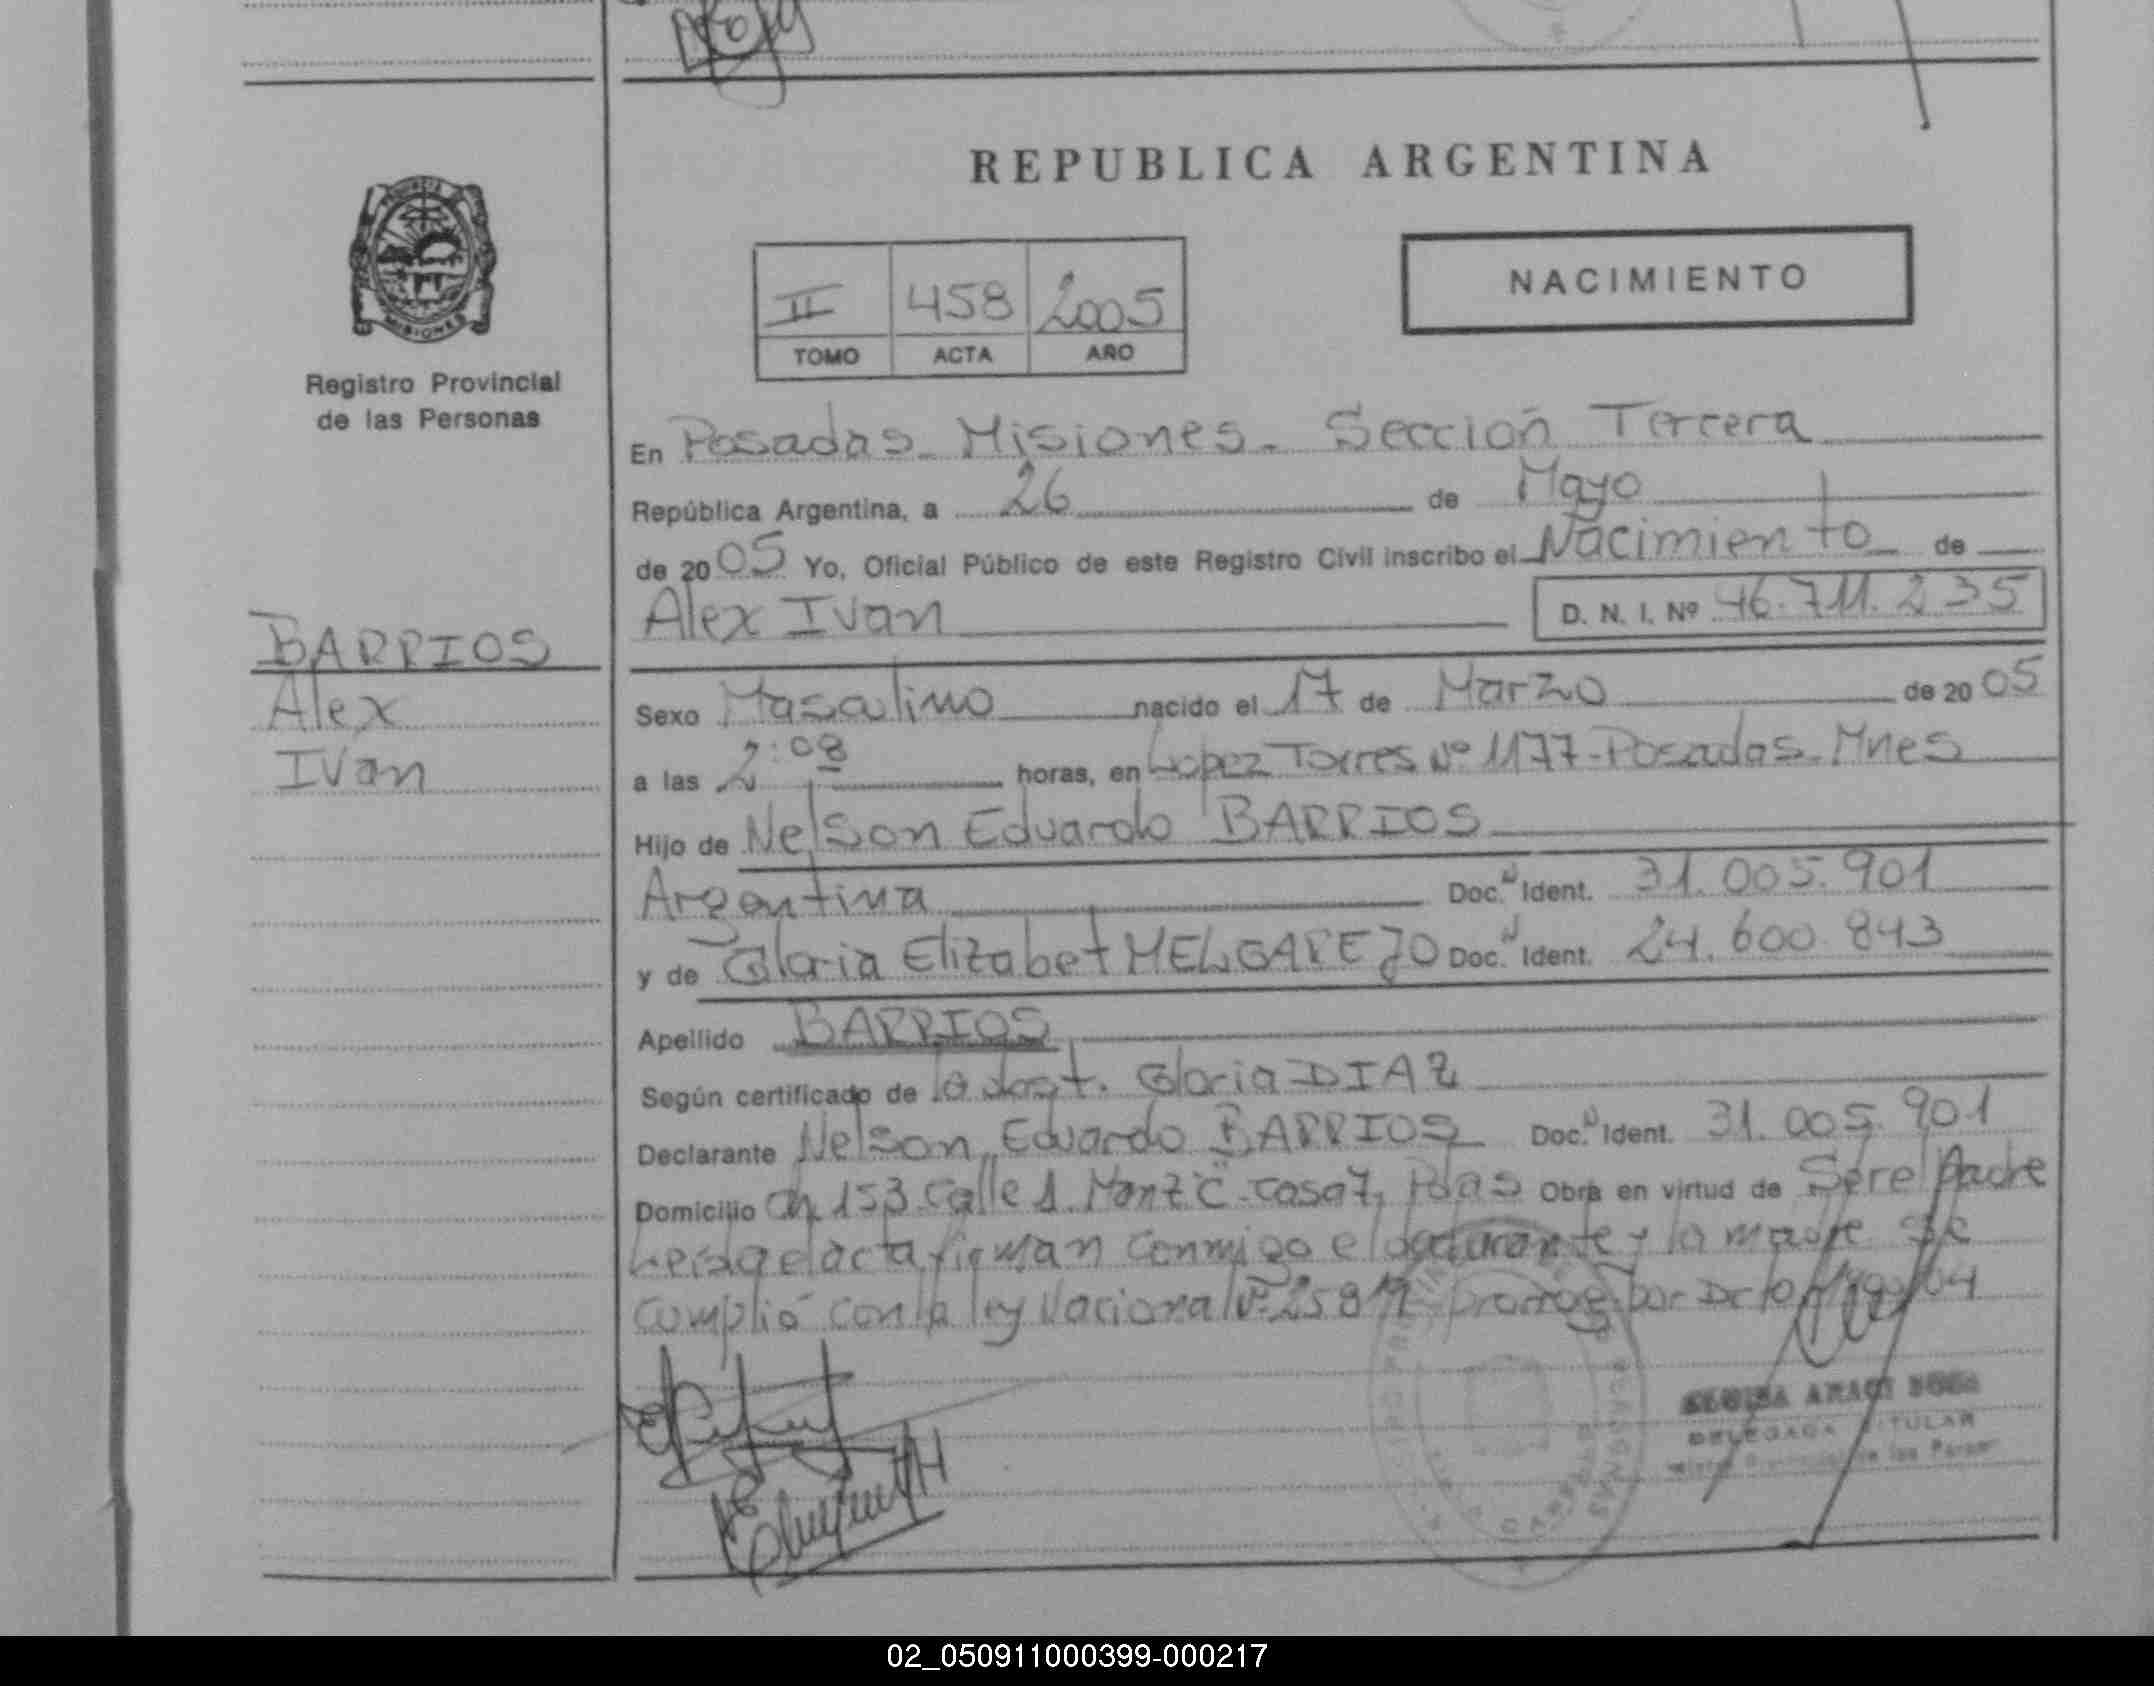 REPUBLICA ARGENTINA
NACIMIENTO
II 458 2005
TOMO ACTA AÑO
MISIONES
Registro Provincial
de las Personas
BARRIOS
Alex
Ivan
En Posadas - Misiones - Sección Tercera
República Argentina, a 26 de Mayo
de 2005 Yo, Oficial Público de este Registro Civil inscribo el Nacimiento de
Alex Ivan D. N. I. Nº 46.711.235
Sexo Masculino nacido el 17 de Marzo de 2005
a las 2:08 horas, en Lopez Torres Nº 1177-Posadas-Mnes
Hijo de Nelson Eduardo BARRIOS
Argentina Doc. Ident. 31.005.901
y de Gloria Elizabet MELGAREJO Doc. Ident. 24.600.843
Apellido BARRIOS
Según certificado de la Gloria DIAZ
Declarante Nelson Eduardo BARRIOS Doc. Ident. 31.005.901
Domicilio Ch 153 calle 1 Manz "C" casa 7, Pdas Obra en virtud de Ser el Padre
Leída el acta firman conmigo el declarante y la madre se
cumplió con la ley Nacional Nº 25819 prorrog por Dcto
DELEGADA TITULAR
02_050911000399-000217